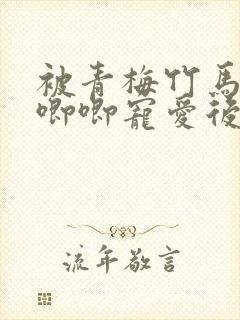 被青梅竹馬
唧唧寵愛後
流年敬言